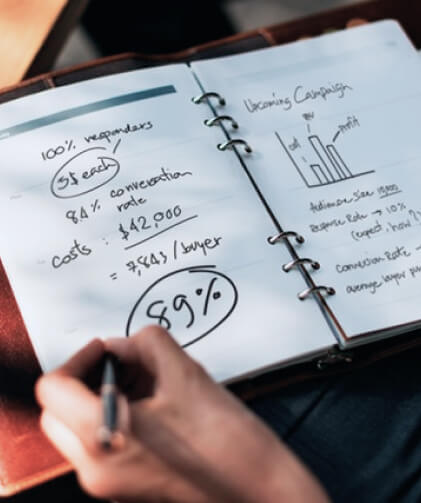 100% responders
5$ each
8.4% conversation
rate
costs : $42,000
= 7,843/buyer
89%
Upcoming Campaign
profit
Audience size 10,000
Response Rate → 10%
(expect, how?
Conversion Rate →
average buyer